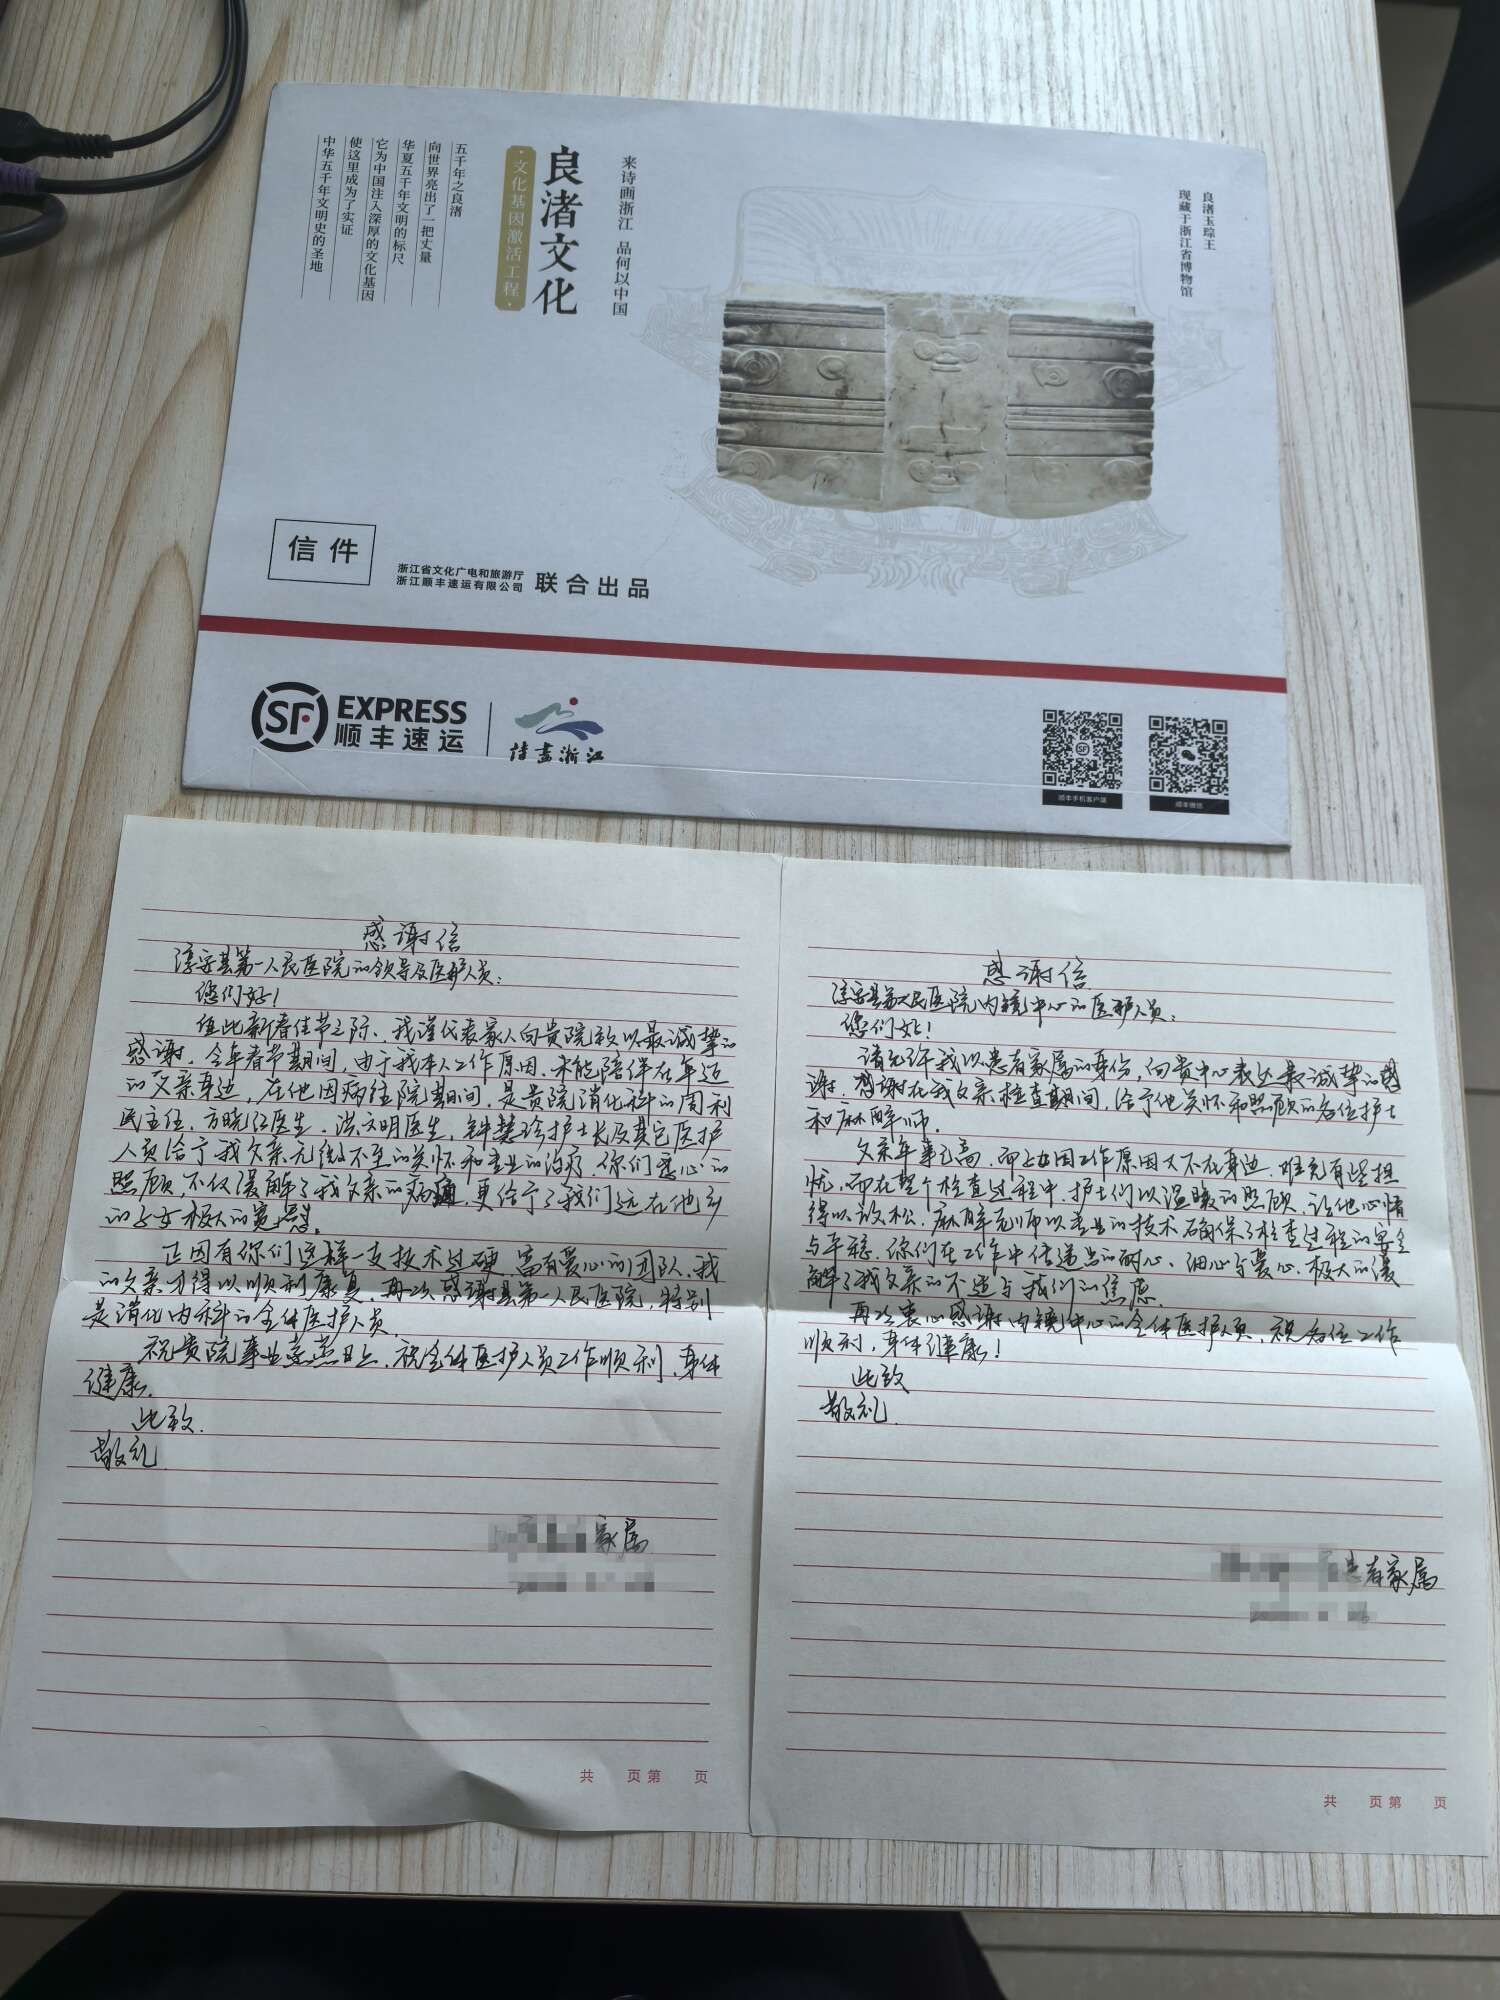 来诗画浙江 品何以中国
良渚文化
·文化基因激活工程·
五千年之良渚
向世界亮出了一把丈量
华夏五千年文明的标尺
它为中国注入深厚的文化基因
使这里成为了实证
中华五千年文明史的圣地
良渚玉琮王
现藏于浙江省博物馆
信件
浙江省文化广电和旅游厅
浙江顺丰速运有限公司
联合出品
SF EXPRESS
顺丰速运
诗画浙江
顺丰手机客户端
顺丰微信
感谢信
淳安县第一人民医院的领导及医护人员:
您们好!
值此新春佳节之际、我谨代表家人向贵院致以最诚挚的
感谢。今年春节期间,由于我本人工作原因、未能陪伴在年迈
的父亲身边,在他因病住院期间,是贵院消化科的周利
民主任,方晓红医生、洪文明医生,钟慧珍护士长及其它医护
人员给予我父亲无微不至的关怀和专业的治疗 你们悉心的
照顾,不仅缓解了我父亲的病痛,更给予了我们远在他乡
的子女极大的宽慰。
正因有你们这样一支技术过硬、富有爱心的团队、我
的父亲才得以顺利康复。再次感谢县第一人民医院,特别
是消化内科的全体医护人员.
祝贵院事业蒸蒸日上,祝全体医护人员工作顺利、身体
健康.
此致.
敬礼
家属
共 页 第 页
感谢信
淳安县第一人民医院内镜中心的医护人员:
您们好!
请允许我以患者家属的身份,向贵中心表达最诚挚的感
谢.感谢在我父亲检查期间,给予他关怀和照顾的各位护士
和麻醉师.
父亲年事已高,而子女因工作原因又不在身边.难免有些担
忧,而在整个检查过程中,护士们以温暖的照顾,让他心情
得以放松.麻醉医师以专业的技术确保了检查过程的安全
与平稳.你们在工作中传递出的耐心、细心与爱心.极大的缓
解了我父亲的不适与我们的焦虑.
再次衷心感谢内镜中心的全体医护人员,祝各位工作
顺利,身体健康!
此致
敬礼.
患者家属
共 页 第 页